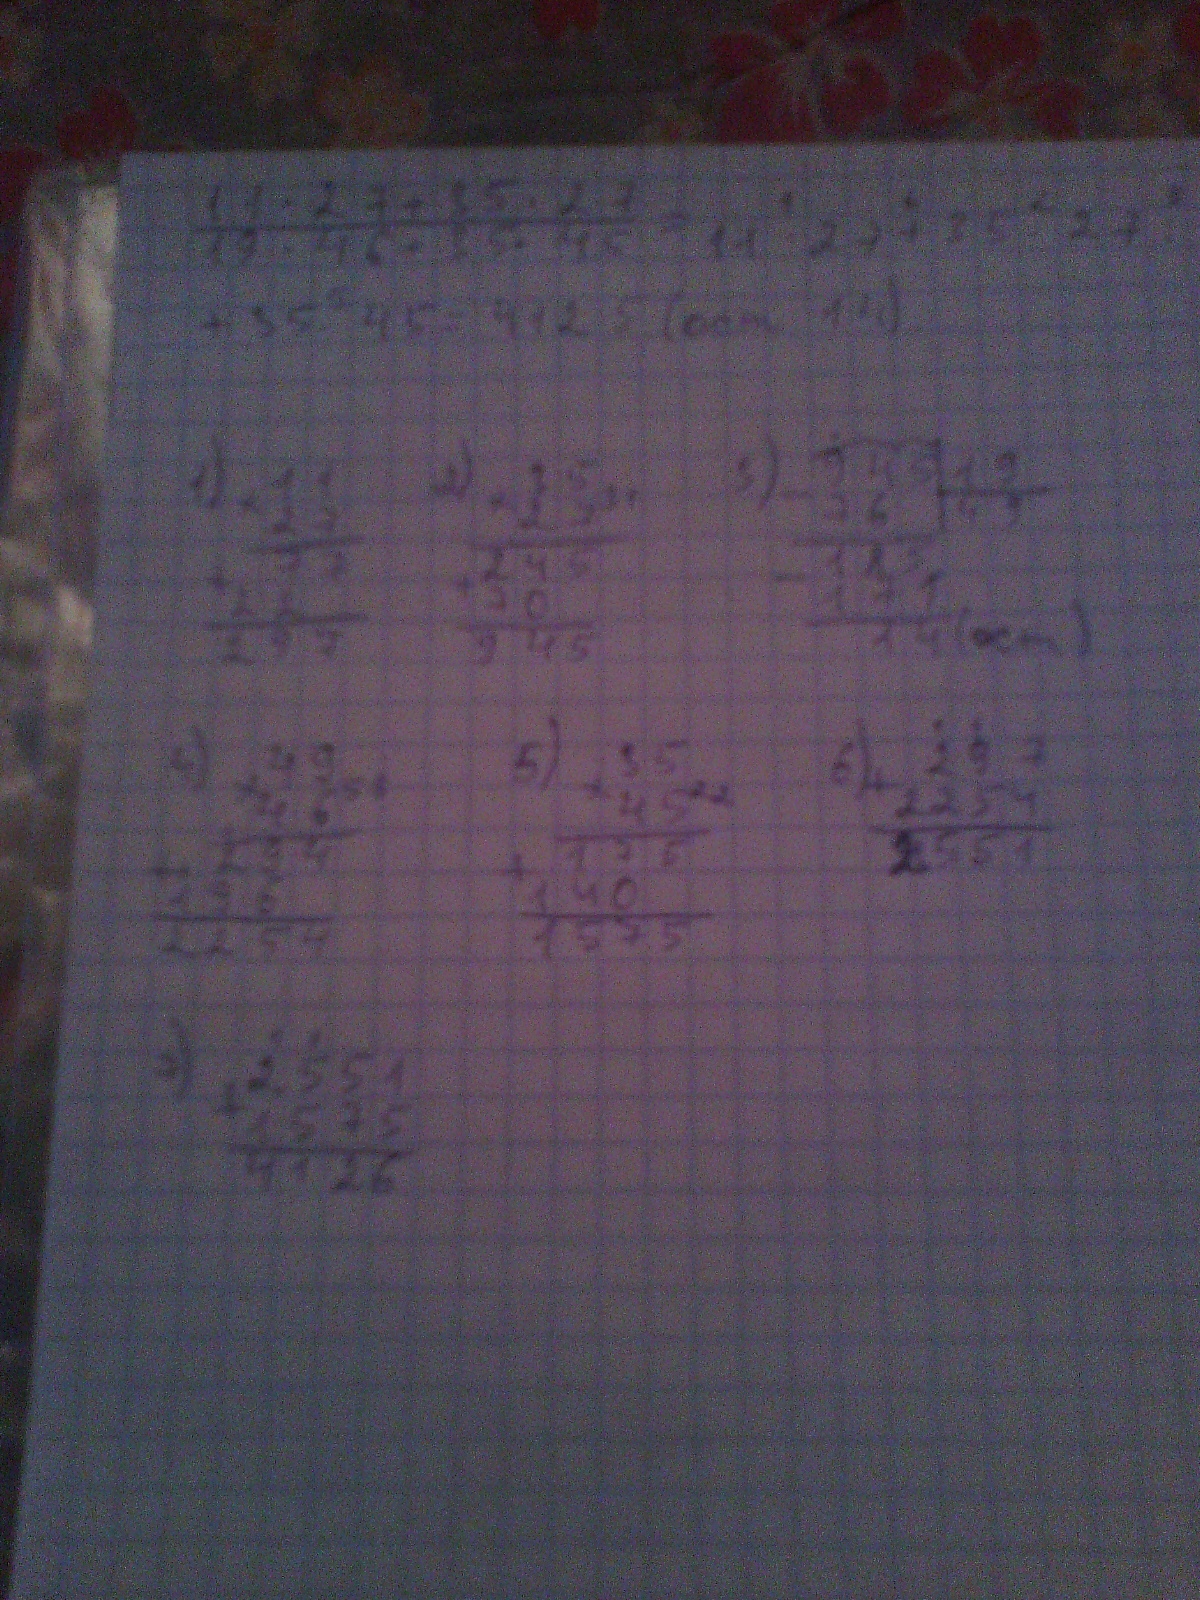 11 · 27 + 35 · 27
19 · 46 + 35 · 45
= 11 · 27 + 35 · 27 :
+ 35 · 45 = 4125 (ост 14)
1) × 11
27
+ 77
22
297
2) × 35
27
+ 245
70
945
3) 945 | 19
- 76 | 49
185
- 171
14 (ост)
4) × 49
46
+ 294
196
2254
5) × 35
45
+ 175
140
1575
6) + 297
2254
2551
7) + 2551
1575
4126